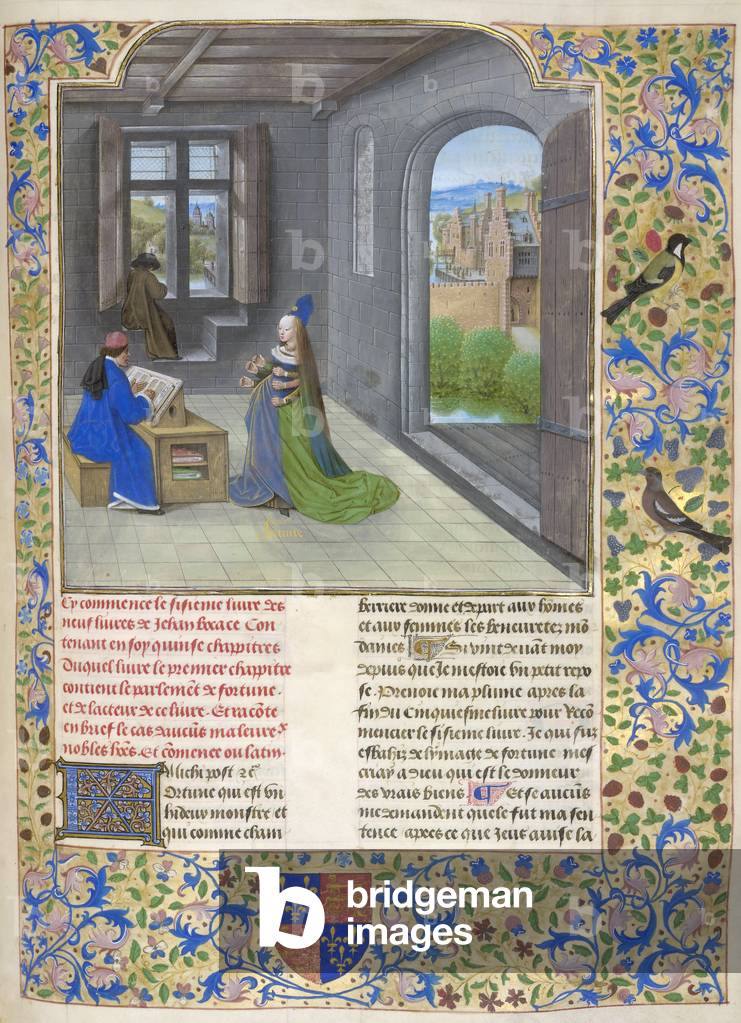 fortune
Cy commence le sisieme livre des
neuf livres de Jehan Bocace Con
tenant en soy quinse chappitres
Duquel livre le premier chappitre
contient le parlemẽt de fortune.
et de lacteur de ce livre. Et racõte
en brief le cas daucũs maleure˟
nobles hões. Et cõmence ou latin.
Michi post &c̃
Fortune qui est vn
hideux monstre et
qui comme cham
beriere donne et depart aux hõmes
et aux femmes les beneuretez mõ
daines Si vint devãt moy
depuis que Je mestoie vn petit repo
se. Prenoie ma plume apres la
fin du Cinquiesme livre pour Recõ
mencier le sisieme livre. Je qui fuz
esbahiz de lymage de fortune mes
criay a dieu qui est le donneur
des vrais biens. Et se aucũs
me demandent quele fut ma sen
tence apres ce que Jeus avise la
b bridgeman
images